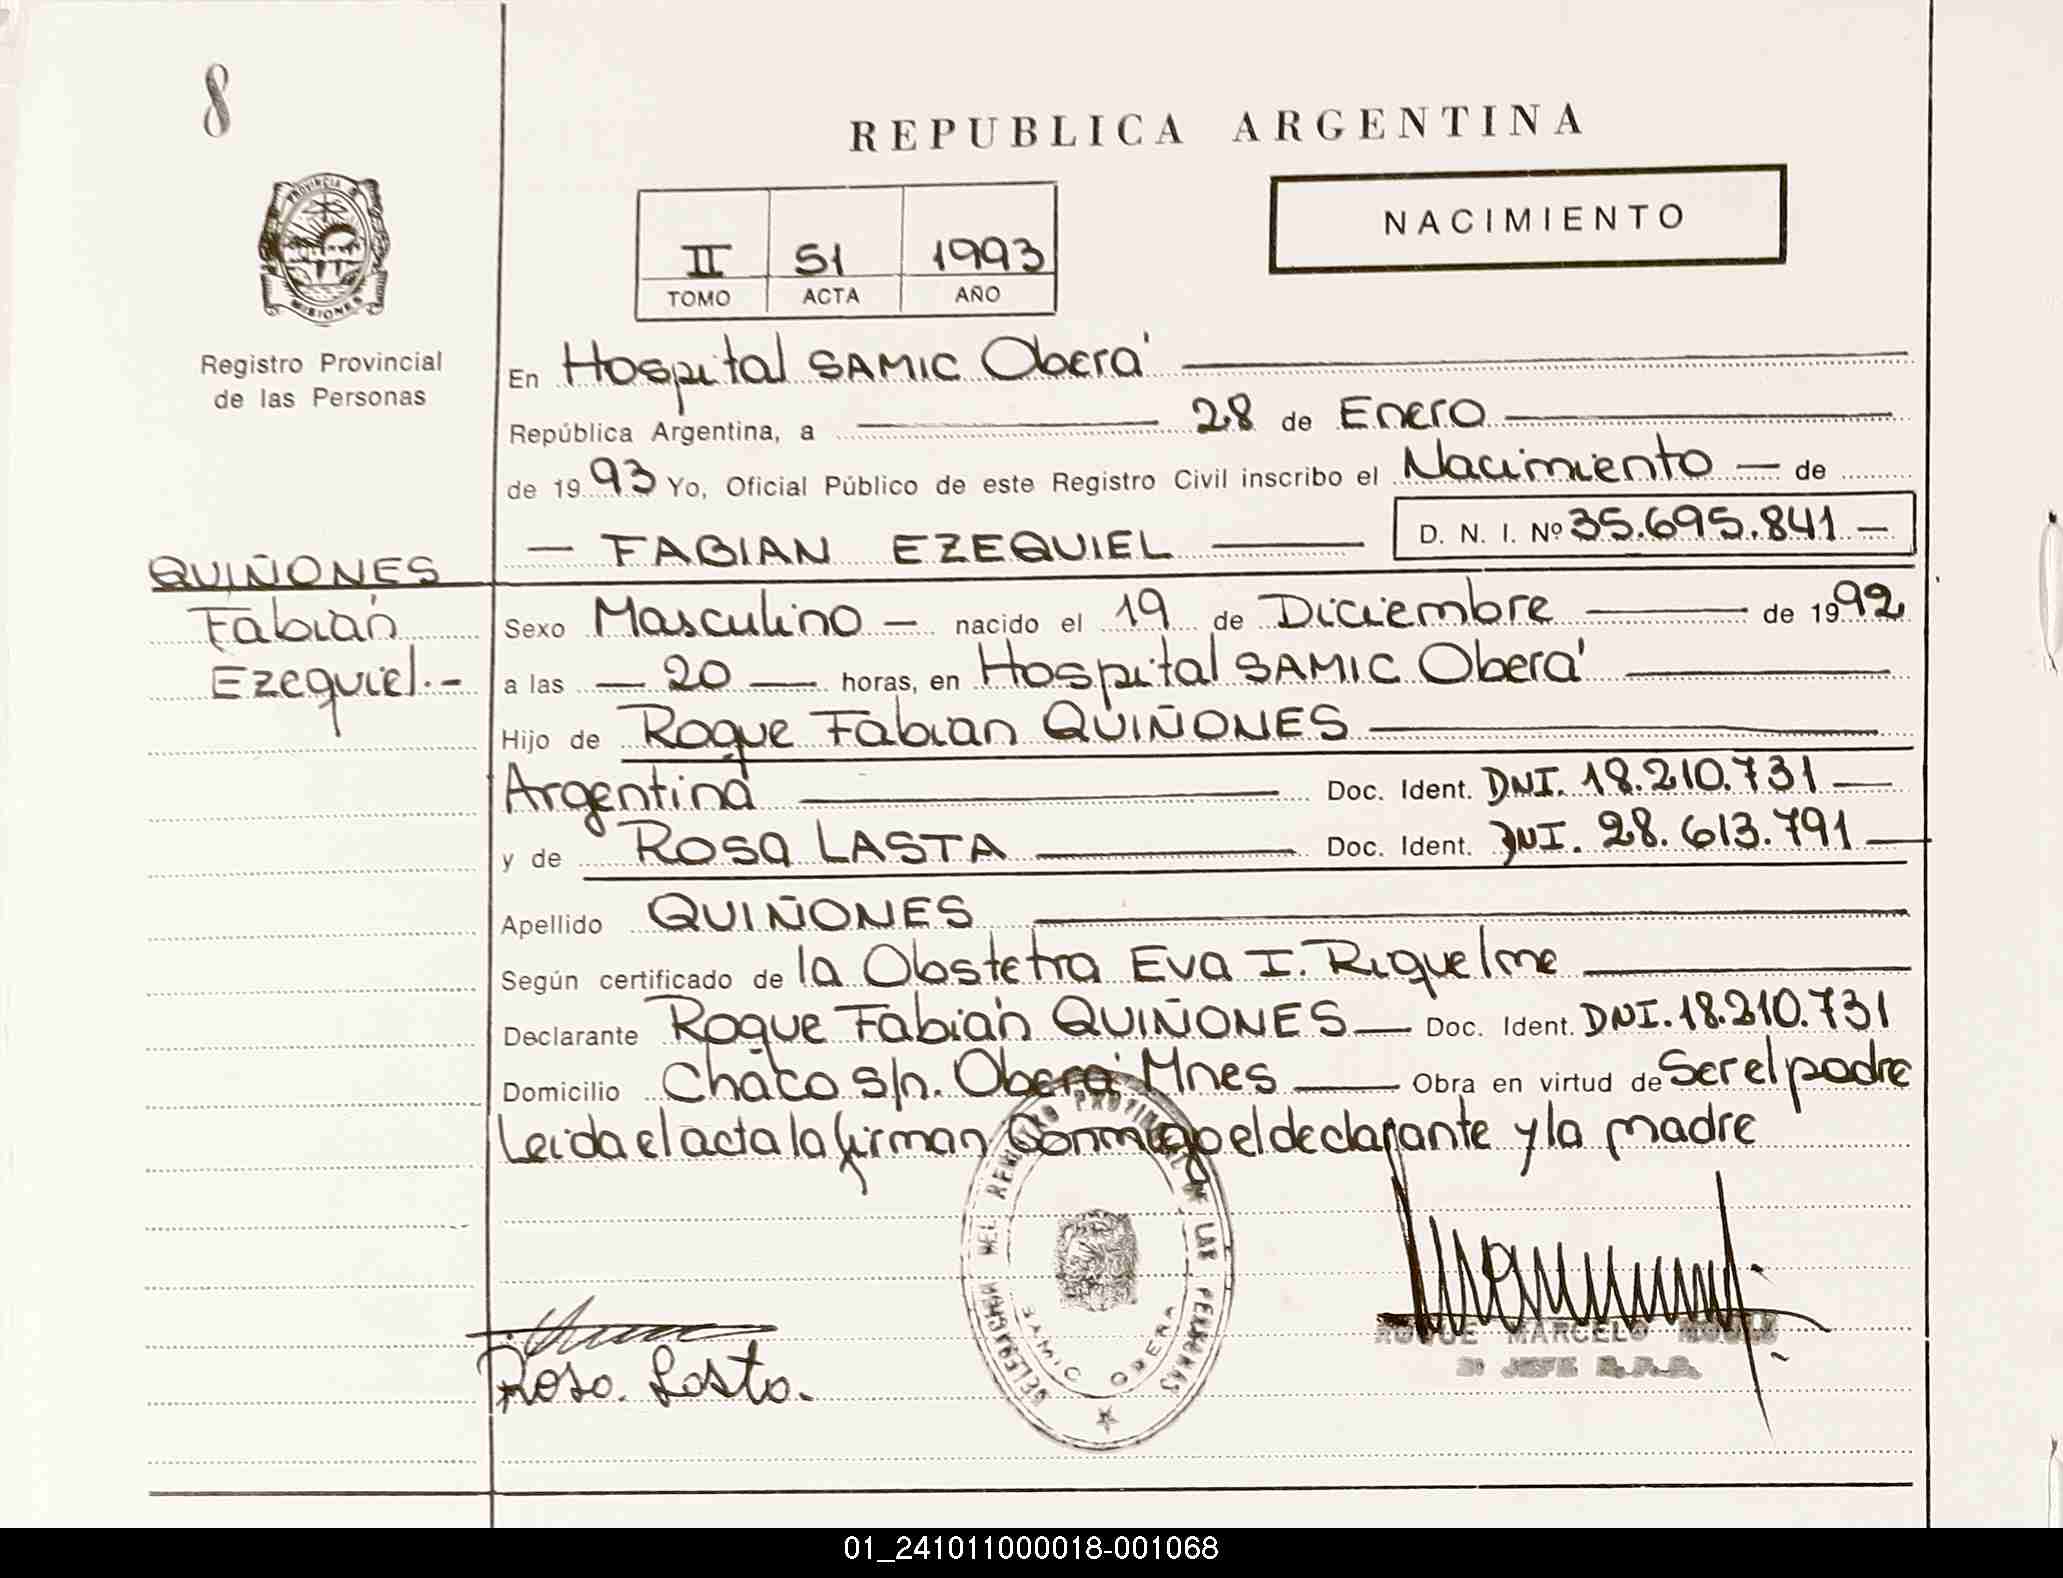 8
REPUBLICA ARGENTINA
NACIMIENTO
II 51 1993
TOMO ACTA AÑO
PROVINCIA D
MISIONES
Registro Provincial
de las Personas
En Hospital SAMIC Oberá
República Argentina, a 28 de Enero
de 1993 Yo, Oficial Público de este Registro Civil inscribo el Nacimiento de
FABIAN EZEQUIEL D. N. I. Nº 35.695.841
QUIÑONES
Fabián
Ezequiel.-
Sexo Masculino nacido el 19 de Diciembre de 1992
a las 20 horas, en Hospital SAMIC Oberá
Hijo de Roque Fabian QUIÑONES
Argentina Doc. Ident. DNI. 18.210.731
y de Rosa LASTA Doc. Ident. DNI. 28.613.791
Apellido QUIÑONES
Según certificado de la Obstetra Eva I. Riquelme
Declarante Roque Fabián QUIÑONES Doc. Ident. DNI. 18.210.731
Domicilio Chaco s/n. Oberá Mnes Obra en virtud de Ser el padre
Leida el acta la firman Conmigo el declarante y la madre
DELEGACION DEL REGISTRO PROVINCIAL DE LAS PERSONAS
SAMIC OBERA
Rosa Lasta.
ROQUE MARCELO
JEFE
01_241011000018-001068